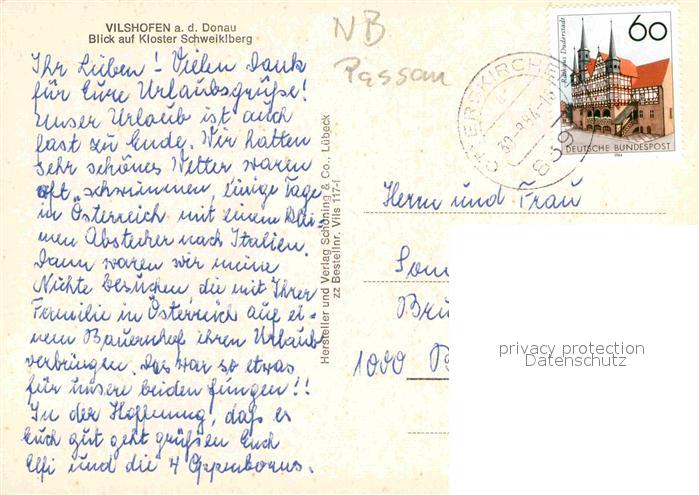 VILSHOFEN a. d. Donau
Blick auf Kloster Schweiklberg
Ihr Lieben! Vielen Dank
für Eure Urlaubsgrüße!
Unser Urlaub ist auch
fast zu Ende. Wir hatten
sehr schönes Wetter waren
oft schwimmen, einige Tage
in Österreich mit einem klei-
nen Abstecher nach Italien.
Dann waren wir meine
Nichte besuchen, die mit Ihrer
Familie in Österreich auf ei-
nem Bauernhof ihren Urlaub
verbringen. Das war so etwas
für unsere beiden Jungen!!
In der Hoffnung, daß es
Euch gut geht grüßen Euch
Elfi und die 4 Oppenborns.
Hersteller und Verlag Schöning & Co., Lübeck
zz Bestellnr. Vils 117-f
NB
Passau
60
Rathaus Duderstadt
DEUTSCHE BUNDESPOST
1984
OTTERSKIRCHEN
8359
Herrn und Frau
1000
privacy protection
Datenschutz